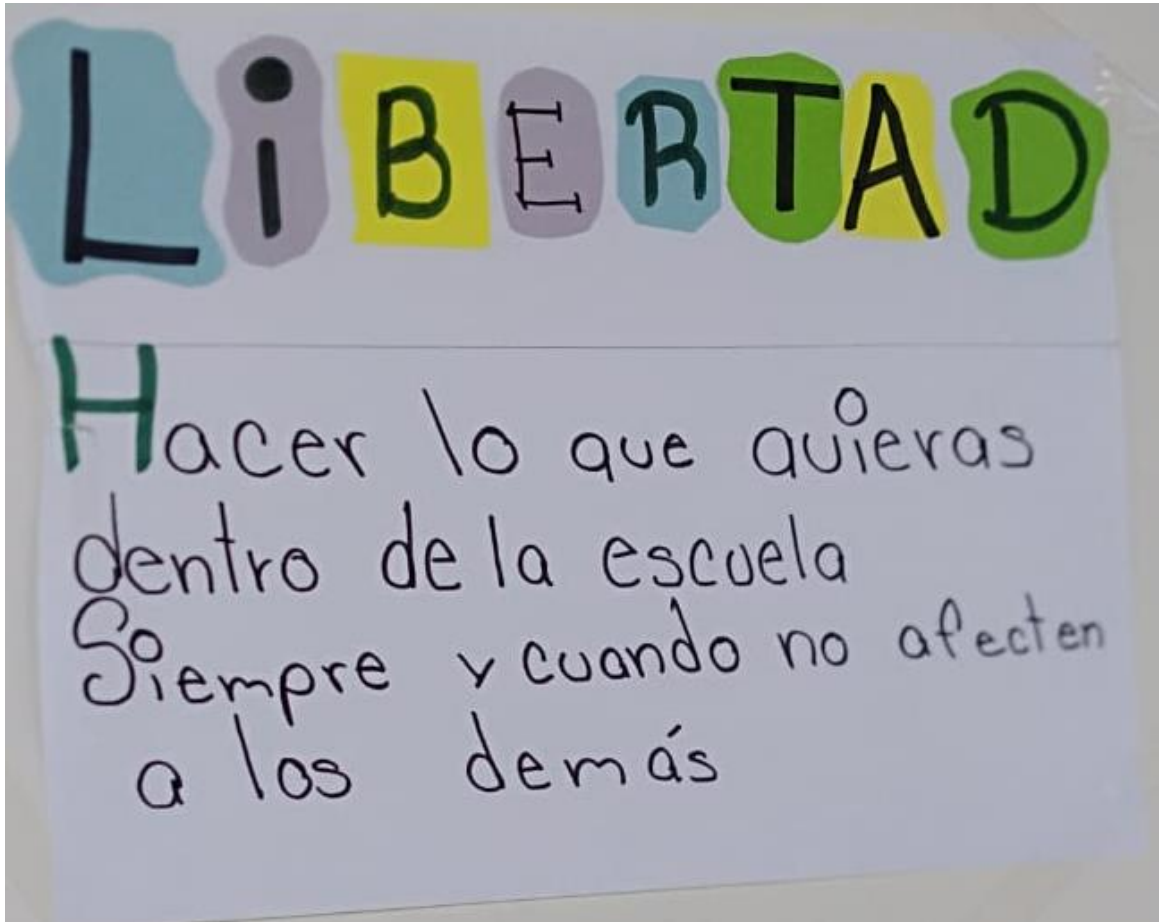 LiBERTAD
Hacer lo que quieras
dentro de la escuela
Siempre y cuando no afecten
a los demás